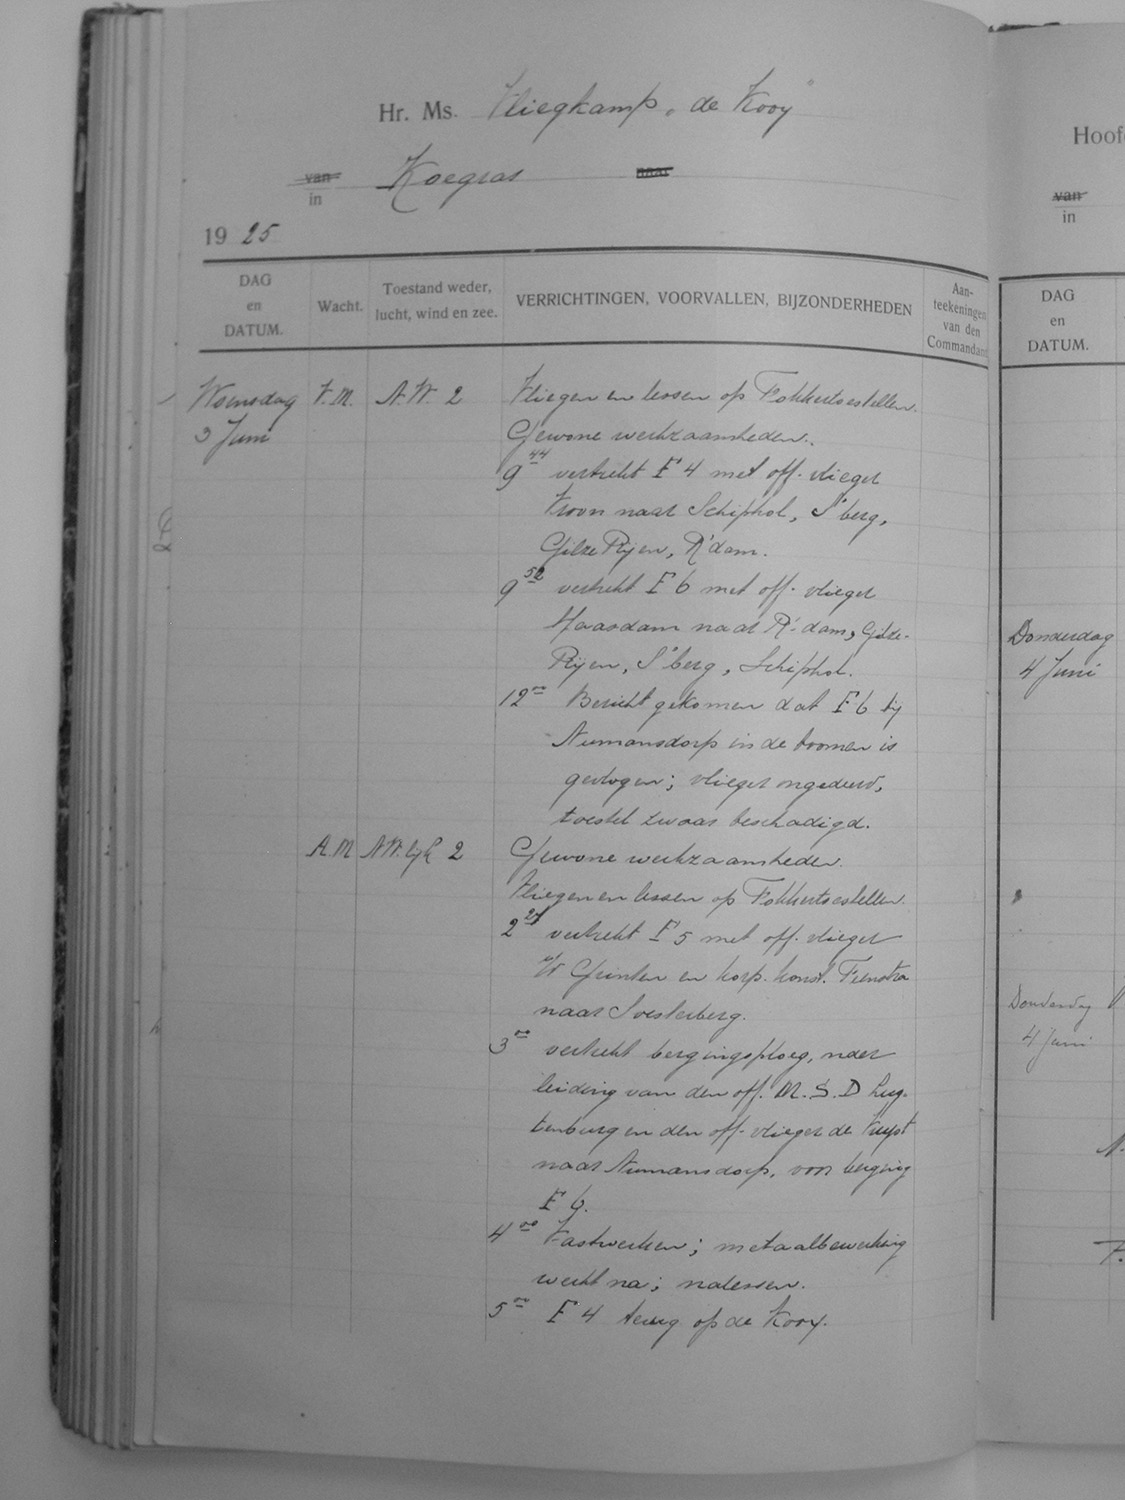 Hr. Ms. Vliegkamp „de Kooy"
van Koegras naar
in
1925
DAG
en
DATUM.
Wacht.
Toestand weder,
lucht, wind en zee.
VERRICHTINGEN, VOORVALLEN, BIJZONDERHEDEN
Aan-
teekeningen
van den
Commandant
Woensdag V.M. N.W. 2 Vliegen en lessen op Fokkertoestellen.
3 Juni Gewone werkzaamheden.
9 44 vertrekt F 4 met off. vlieger
Kroon naar Schiphol, S'berg,
Gilze Rijen, R'dam.
9 52 vertrekt F 6 met off. vlieger
Haasdam naar R'dam, Gilze-
Rijen, S'berg, Schiphol.
12 00 Bericht gekomen dat F 6 bij
Numansdorp in de boomen is
gevlogen; vlieger ongedeerd,
toestel zwaar beschadigd.
A.M N.W. 2 Gewone werkzaamheden.
Vliegen en lessen op Fokkertoestellen.
2 27 vertrekt F 5 met off. vlieger
V Grinten en korp. konst. Feenstra
naar Soesterberg.
3 00 vertrekt bergingsploeg, onder
leiding van den off. M.S.D Lug-
tenburg en den off. vlieger de
naar Numansdorp, voor berging
F 6.
4 00 Vastwerken; metaalbewerking
werkt na; nalessen.
5 00 F 4 terug op de Kooy.
Hoof
van
in
DAG
en
DATUM.
Donderdag
4 Juni
Donderdag V
4 Juni
N.